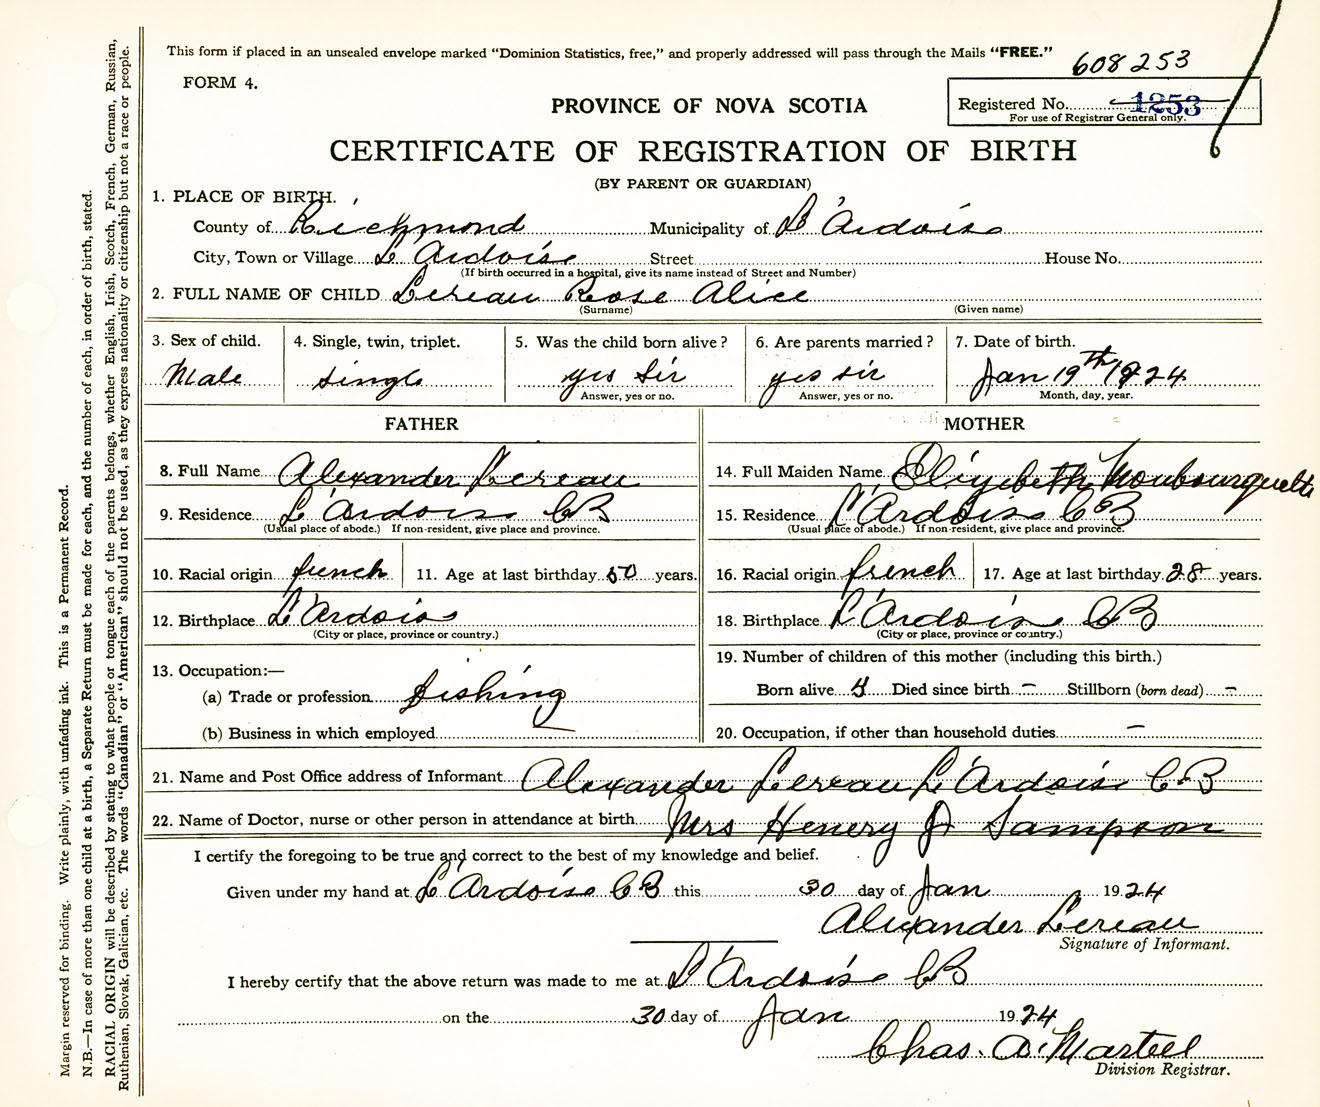 This form if placed in an unsealed envelope marked "Dominion Statistics, free," and properly addressed will pass through the Mails "FREE."
608253
FORM 4.
PROVINCE OF NOVA SCOTIA
Registered No. 1253
For use of Registrar General only.
CERTIFICATE OF REGISTRATION OF BIRTH
(BY PARENT OR GUARDIAN)
1. PLACE OF BIRTH.
County of Richmond Municipality of L'Ardois
City, Town or Village L'Ardoise Street House No.
(If birth occurred in a hospital, give its name instead of Street and Number)
2. FULL NAME OF CHILD Lereau Rose Alice
(Surname) (Given name)
3. Sex of child. 4. Single, twin, triplet. 5. Was the child born alive? 6. Are parents married? 7. Date of birth.
Male single yes Sir yes sir Jan 19th 1924
Answer, yes or no. Answer, yes or no. Month, day, year.
FATHER
8. Full Name Alexander Lereau
9. Residence L'Ardois CB
(Usual place of abode.) If non-resident, give place and province.
10. Racial origin french 11. Age at last birthday 50 years.
12. Birthplace L'Ardois
(City or place, province or country.)
13. Occupation:—
(a) Trade or profession fishing
(b) Business in which employed
MOTHER
14. Full Maiden Name Elizebeth Monbourquette
15. Residence L'Ardoise CB
(Usual place of abode.) If non-resident, give place and province.
16. Racial origin french 17. Age at last birthday 28 years.
18. Birthplace L'Ardois CB
(City or place, province or country.)
19. Number of children of this mother (including this birth.)
Born alive 4 Died since birth – Stillborn (born dead) –
20. Occupation, if other than household duties –
21. Name and Post Office address of Informant Alexander Lereau L'Ardoise CB
22. Name of Doctor, nurse or other person in attendance at birth Mrs Henery J Sampson
I certify the foregoing to be true and correct to the best of my knowledge and belief.
Given under my hand at L'Ardoise CB this 30 day of Jan 1924
Alexander Lereau
Signature of Informant.
I hereby certify that the above return was made to me at L'Ardoise CB
on the 30 day of Jan 1924
Chas. A. Martell
Division Registrar.
Margin reserved for binding. Write plainly, with unfading ink. This is a Permanent Record.
N.B.—In case of more than one child at a birth, a Separate Return must be made for each, and the number of each, in order of birth, stated.
RACIAL ORIGIN will be described by stating to what people or tongue each of the parents belongs, whether English, Irish, Scotch, French, German, Russian,
Ruthenian, Slovak, Galician, etc. The words "Canadian" or "American" should not be used, as they express nationality or citizenship but not a race or people.